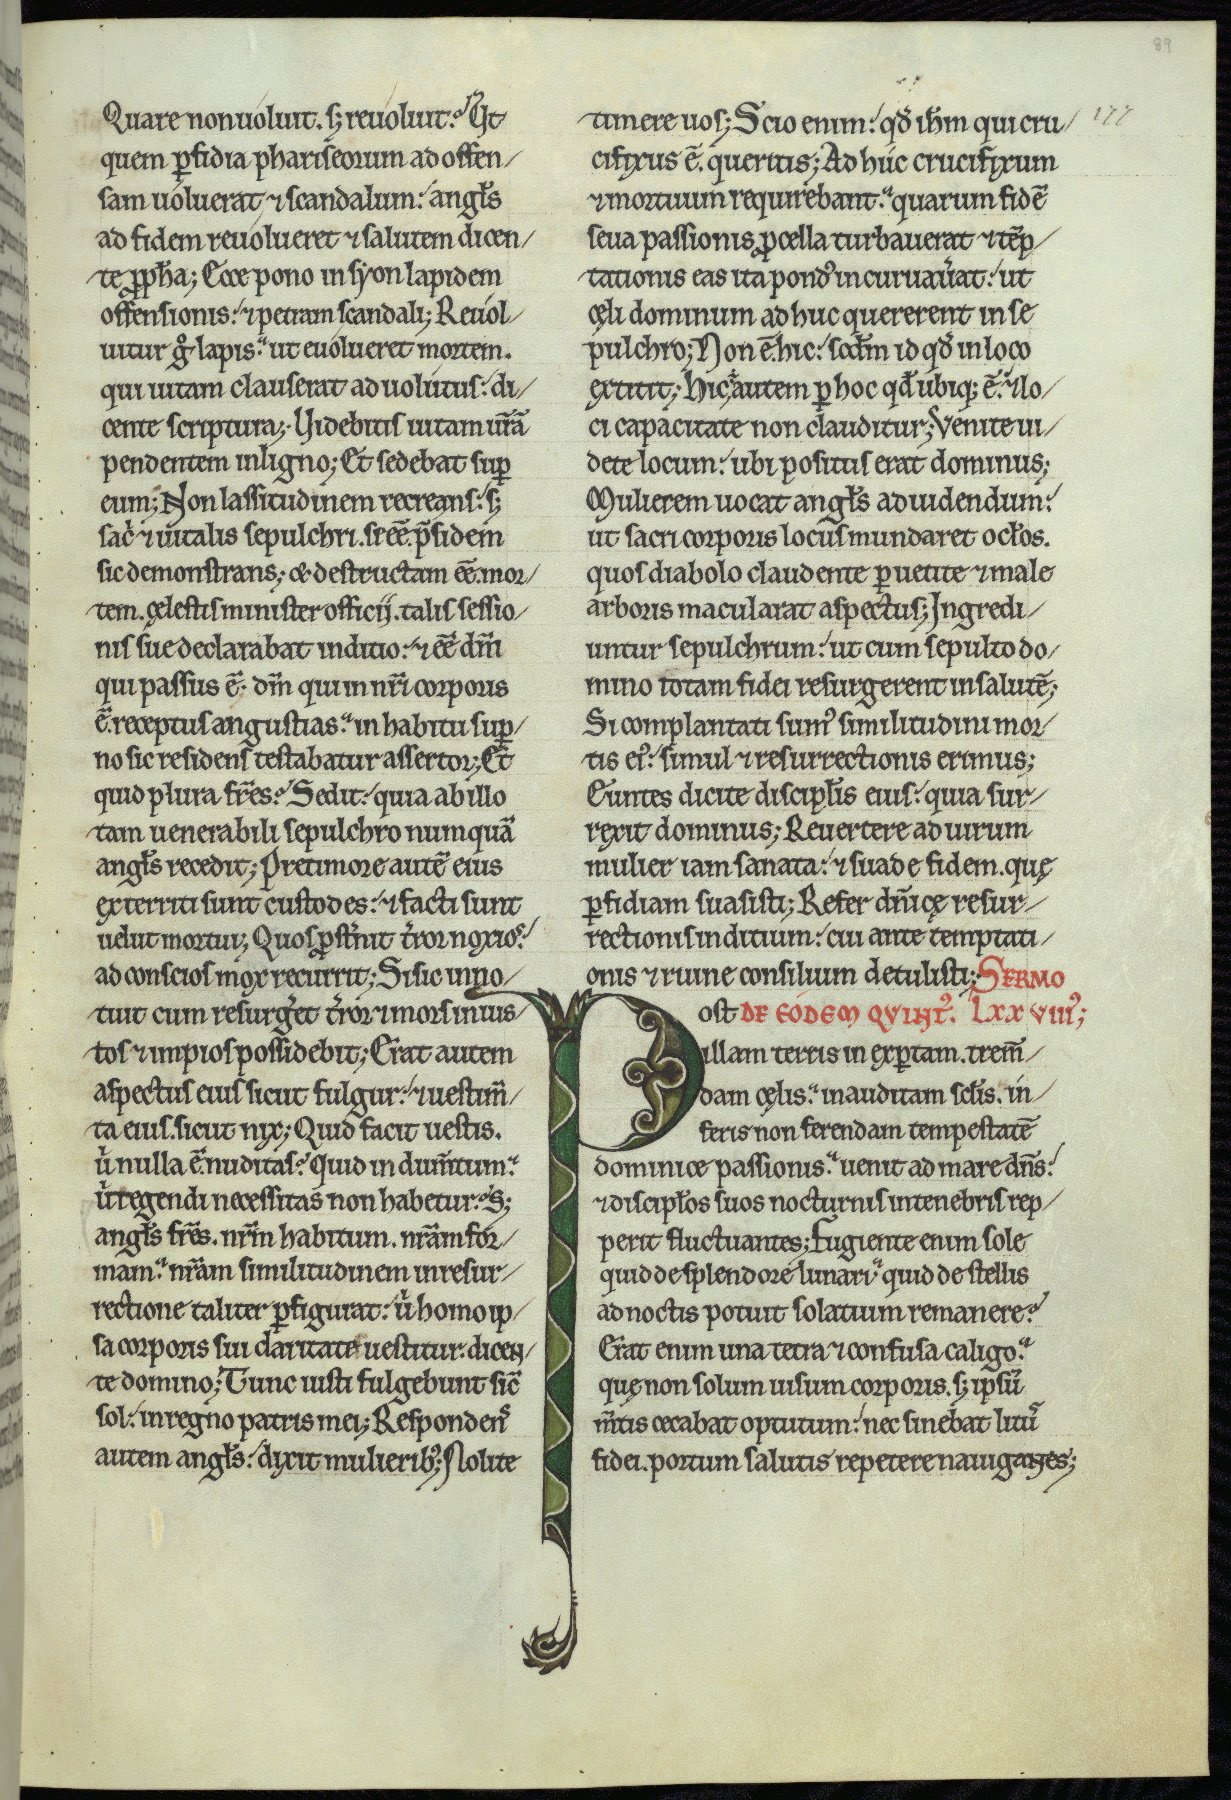 89
177
Quare non uoluit. s; reuoluit? Vt
quem ꝑfidia phariseorum ad offen/
sam uoluerat ⁊ scandalum: angl̃s
ad fidem reuolueret ⁊ salutem dicen/
te ꝓpha; Ecce pono in syon lapidem
offensionis: ⁊ petram scandali; Reuol/
uitur gͦ lapis: ut euolueret mortem.
qui uitam clauserat aduolutus: di/
cente scriptura; Videbitis uitam ur̃ã
pendentem in ligno; Et sedebat suꝑ
eum; Non lassitudinem recreans: s;
sac̉ ⁊ uitalis sepulchri. se eẽ p̃sidem
sic demonstrans; & destructam eẽ mor/
tem. cęlestis minister officij. talis sessio/
nis sue declarabat inditio: ⁊ eẽ dñm
qui passus ẽ. dñm qui in nr̃i corporis
ẽ. receptus angustias: in habitu suꝑ/
no sic residens testabatur assertor; Et
quid plura fr̃es? Sedit: quia ab illo
tam uenerabili sepulchro numquã
angl̃s recedit; Pre timore autẽ eius
exterriti sunt custodes: ⁊ facti sunt
uelut mortui; Quos ꝓst̉nit t̉ror noxios:
ad conscios mox recurrit; Si sic inno/
tuit cum resurg̉et t̉ror ⁊ mors inius/
tos ⁊ impios possidebit; Erat autem
aspectus eius sicut fulgur: ⁊ uestim̃/
ta eius. sicut nix; Quid facit uestis.
ů nulla ẽ nuditas? Quid indum̃tum:
ů tegendi necessitas non habetur? S;
angl̃s fr̃es. nr̃m habitum. nr̃am for/
mam: nr̃am similitudinem in resur/
rectione taliter p̃figurat: ů homo ip/
sa corporis sui claritate uestitur. dicen/
te domino; Tunc iusti fulgebunt sic̃
sol: in regno patris mei; Respondens
autem angl̃s: dixit mulieribꝰ; Nolite
timere uos; Scio enim: qđ ihm qui cru/
cifixus ẽ. queritis; Ad huc crucifixum
⁊ mortuum requirebant: quarum fidẽ
seua passionis ꝓcella turbauerat ⁊ tẽp/
tationis eas ita pondꝰ incuruau̾at: ut
cęli dominum ad huc quererent in se
pulchro; Non ẽ hic: scđm id qđ in loco
extitit; Hic autem ꝑ hoc qđ ubiq; ẽ: ⁊ lo/
ci capacitate non clauditur; Venite ui/
dete locum: ubi positus erat dominus;
Mulierem uocat angl̃s ad uidendum:
ut sacri corporis locus mundaret ocl̃os.
quos diabolo claudente ꝑ uetite ⁊ male
arboris macularat aspectus; Ingredi/
untur sepulchrum: ut cum sepulto do/
mino totam fidei resurgerent in salutẽ;
Si complantati sumꝰ similitudini mor/
tis eiꝰ: simul ⁊ resurrectionis erimus;
Euntes dicite discipl̃is eius: quia sur/
rexit dominus; Reuertere ad uirum
mulier iam sanata: ⁊ suade fidem. quę
ꝑfidiam suasisti; Refer dñicę resur/
rectionis inditium: cui ante temptati/
onis ⁊ ruine consilium detulisti; SERMO
Post DE EODEM QVINTꝰ. Lxx viiiꝰ;
illam terris inexꝑtam. trem̃/
dam cęlis: inauditam sc̃lis. in/
feris non ferendam tempestatẽ
dominice passionis: uenit ad mare dñs:
⁊ discipl̃os suos nocturnis in tenebris rep/
perit fluctuantes; Fugiente enim sole
quid de splendore lunari: quid de stellis
ad noctis potuit solatium remanere?
Erat enim una tetra ⁊ confusa caligo:
quę non solum uisum corporis. s; ipsũ
m̃tis cecabat optutum: nec sinebat litus
fidei. portum salutis repetere nauigantes;